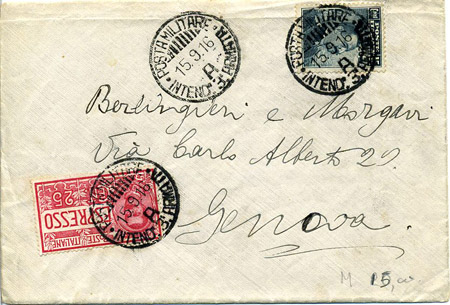 POSTA MILITARE
15.9.16
A
INTEND.
POSTA MILITARE
15.9.16
A
INTEND.
Berlingieri e Morgavi
Via Carlo Alberto 29
Genova
25
ESPRESSO
POSTE ITALIANE
15.9.16
A
INTEND.
M 15,00